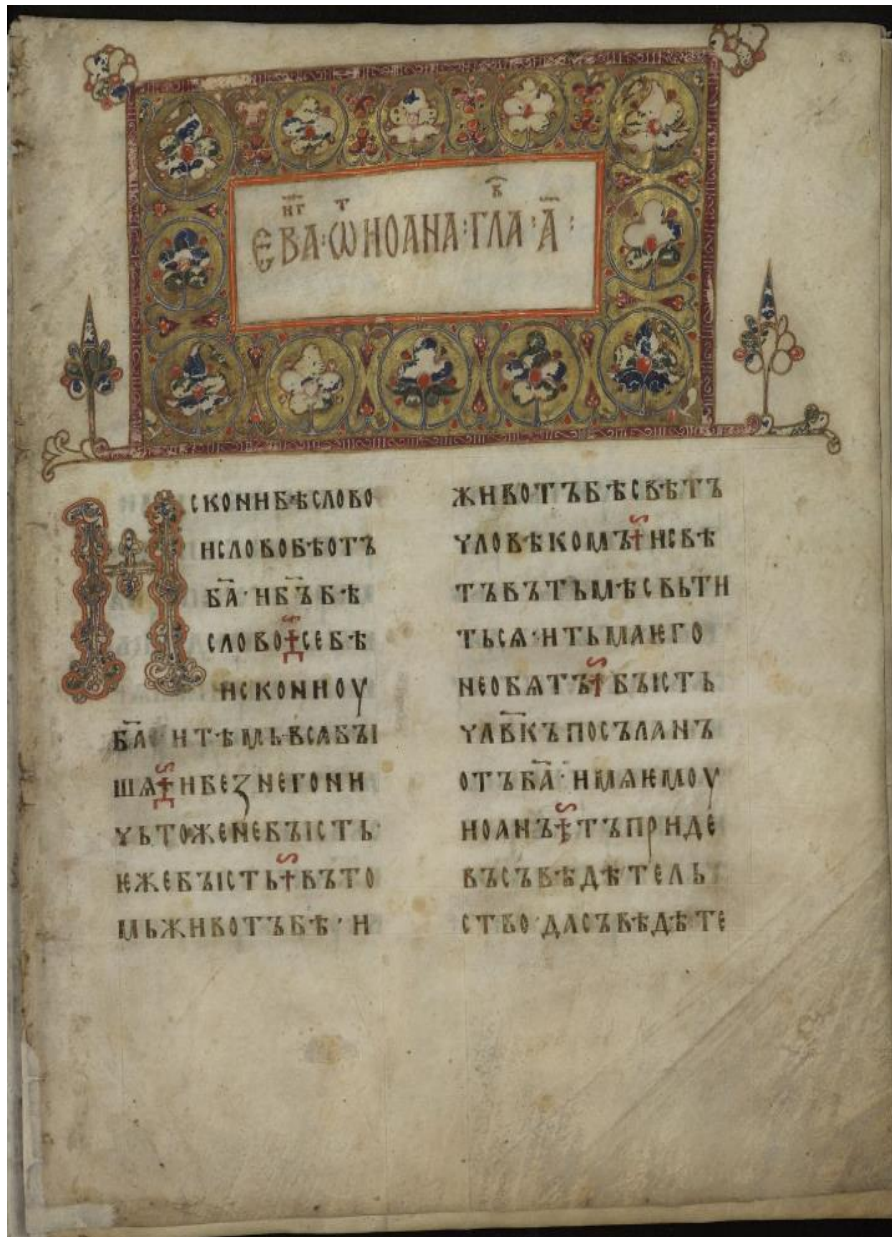 ЕВА҃НГ · Ѿ ИОАНА · ГЛВА · А҃ ·
Искони бѣ слово
и слово бѣ отъ
ба҃ · и бъ҃ бѣ
слово се бѣ
искони оу
ба҃ · и тѣмь вьсꙗ бꙑ
шѧ и беꙁ него ни
чьтоже не бꙑсть ·
ѥже бꙑсть въ то
мь животъ бѣ · и
животъ бѣ свѣтъ
чловѣкомъ и свѣ
тъ въ тьмѣ свьти
тьсѧ · и тьма ѥго
не обѧтъ бꙑсть
члв҃къ посъланъ
отъ ба҃ · имѧ ѥмоу
иоанъ тъ приде
въ съвѣдѣтель
ство · да съвѣдѣте